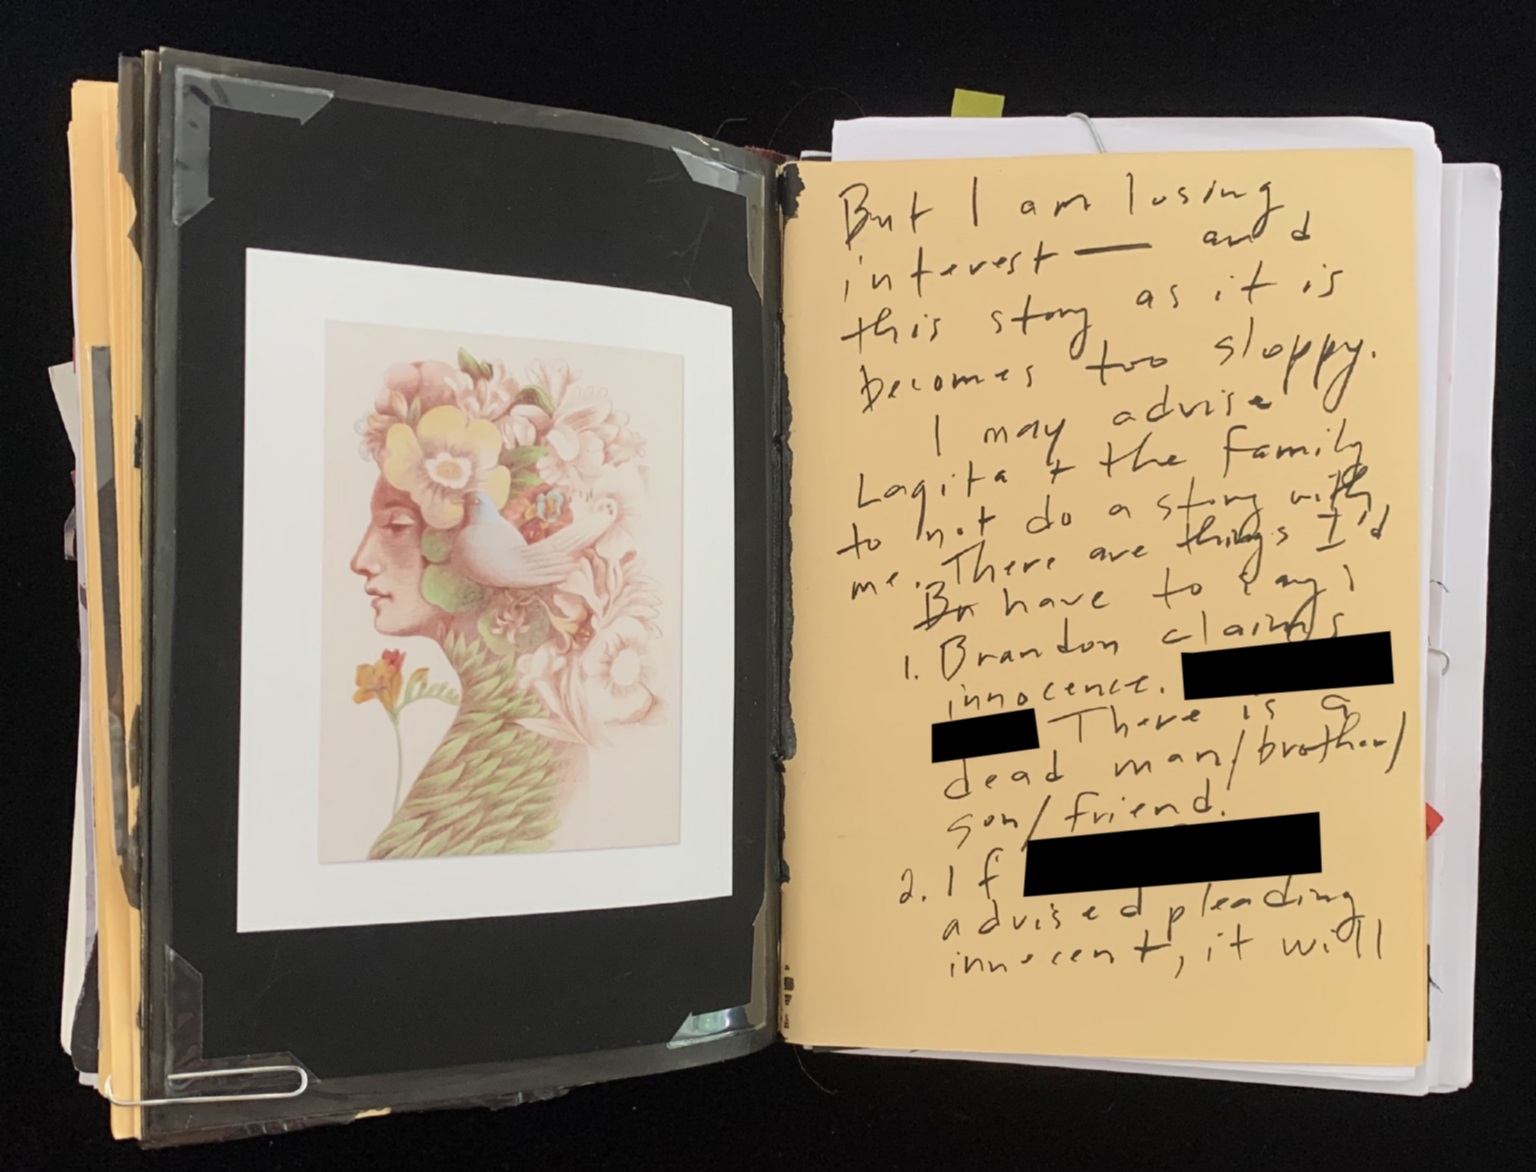 But I am losing
interest — and
this story as it is
becomes too sloppy.
I may advise
Laqita + the family
to not do a story with
me. There are things I'd
have to say:
1. Brandon claims
innocence.
There is a
dead man/brother/
son/friend.
2. If
advised pleading
innocent, it will